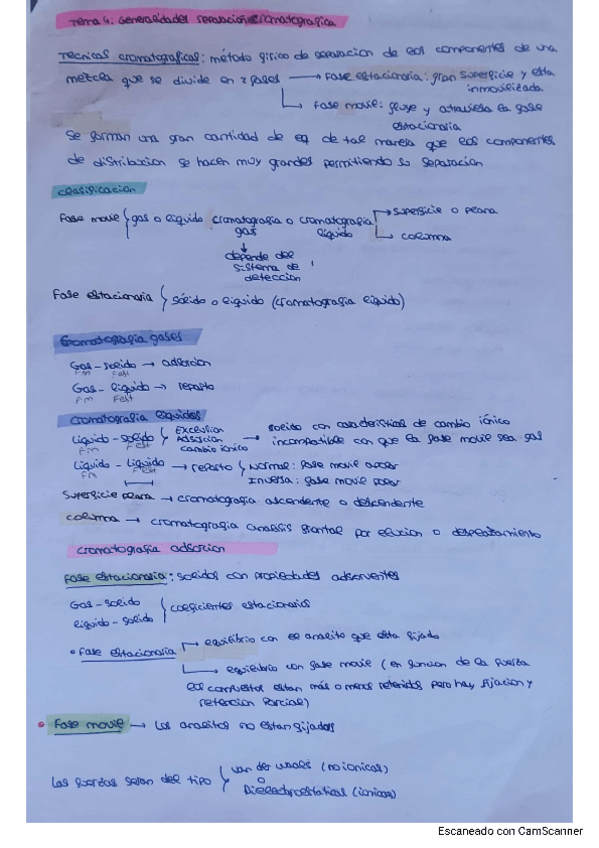 Tema 4: Generalidades separacion cromatografica
Tecnicas cromatograficas: método fisico de separacion de los componentes de una
mezcla que se divide en 2 fases → Fase estacionaria: gran superficie y esta
inmovilizada
Fase movil: fluye y atraviesa la fase
estacionaria
Se forman una gran cantidad de eq de tal manera que los componentes
de distribucion se hacen muy grandes permitiendo su separacion
clasificacion
Fase movil gas o liquido cromatografia o cromatografia → superficie o plana
gas liquido → columna
depende del
sistema de
deteccion
Fase estacionaria sólido o liquido (cromatografia liquido)
Cromatografia gases
Gas-solido → adsorcion
Fm Fest
Gas-liquido → reparto
Fm Fest
cromatografia liquidos
Liquido-solido Exclusion
Adsorcion
cambio iónico → solido con caracteristicas de cambio iónico
incompatible con que la fase movil sea gas
Fm Fest
Liquido-Liquido → reparto Normal: fase movil apolar
Fm Fest
Inversa: fase movil polar
Superficie plana → cromatografia ascendente o descendente
columna → cromatografia analisis frontal por elucion o desplazamiento
cromatografia adsorcion
Fase estacionaria: solidos con propiedades adsorventes
Gas-solido
liquido-solido coeficientes estacionarios
• Fase estacionaria → equilibrio con el analito que esta fijado
→ equilibrio con fase movil (en funcion de la fuerza
los compuestos estan más o menos retenidos pero hay fijacion y
retencion parcial)
• Fase movil → Los analitos no estan fijados
Las fuerzas seran del tipo van der waals (no ionicas)
o
Dielectroestaticas (ionicas)
Escaneado con CamScanner